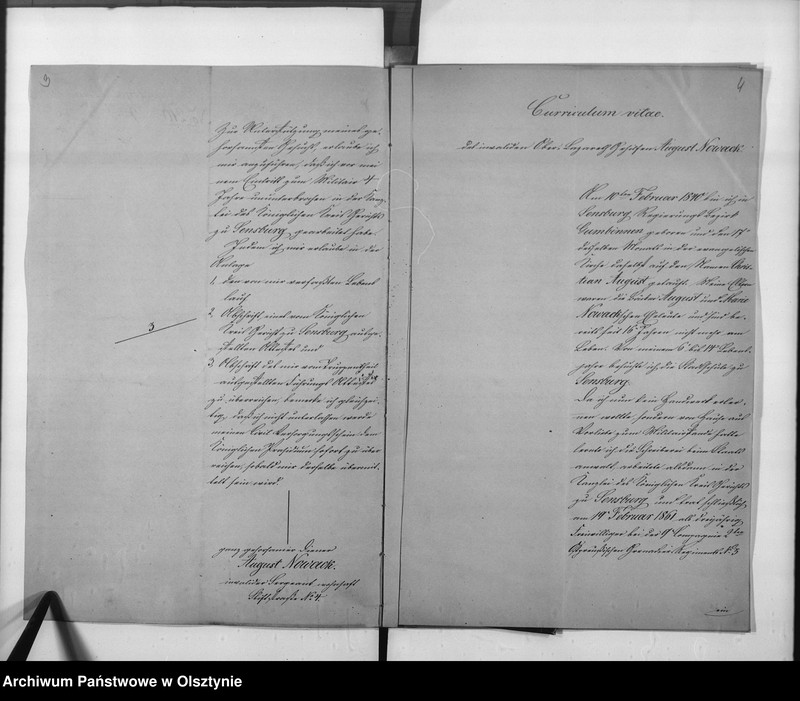 3
Zur Unterstützung meines ge-
horsamsten Gesuchs, erlaube ich
mir anzuführen, daß ich vor mei
nem Eintritt zum Militair 4
Jahre ununterbrochen in der Kanz-
lei des Königlichen Kreis Gerichts
zu Sensburg gearbeitet habe.
Indem ich mir erlaube in der
Anlage
1, den von mir verfaßten Lebens
lauf
2, Abschrift eines vom Königlichen
Kreis Gericht zu Sensburg ausge-
stellten Attestes und
3, Abschrift des mir vom Truppentheil
ausgestellten Führungs Attestes
zu überreichen, bemerke ich gleichzei-
tig, daß ich nicht unterlassen werde
meinen Civil-Versorgungsschein dem
Königlichen Praesidium sofort zu über
reichen, sobald mir derselbe übermit-
telt sein wird
3
ganz gehorsamer Diener
August Nowack.
invalider Sergeant wohnhaft
Stift Straße No 4.
4
Curriculum vitae.
des invaliden Ober-Lazareth Gehilfen August Nowack
Am 10ten Februar 1840 bin ich in
Sensburg, Regierungs Bezirk
Gumbinnen geboren und den 19t
desselben Monats in der evangelischen
Kirche daselbst auf den Namen Chris-
tian August getauft. Meine Eltern
waren die Büttner August und Marie
Nowackschen Eheleute und sind be-
reits seit 16 Jahren nicht mehr am
Leben. Von meinem 6t bis 14t Lebens-
jahre besuchte ich die Stadtschule zu
Sensburg.
Da ich nun kein Handwerk erler-
nen wollte, sondern von Hause aus
Vorliebe zum Militairstande hatte
lernte ich die Schreiberei beim Staats
anwalt, arbeitete alsdann in der
Kanzlei des Königlichen Kreis Gerichts
zu Sensburg und trat schließlich,
am 19t Februar 1861 als dreijährig
Freiwilliger bei der 9t Compagnie 2ten
Ostpreußischen Grenadier Regiments No 3
ein
Archiwum Państwowe w Olsztynie